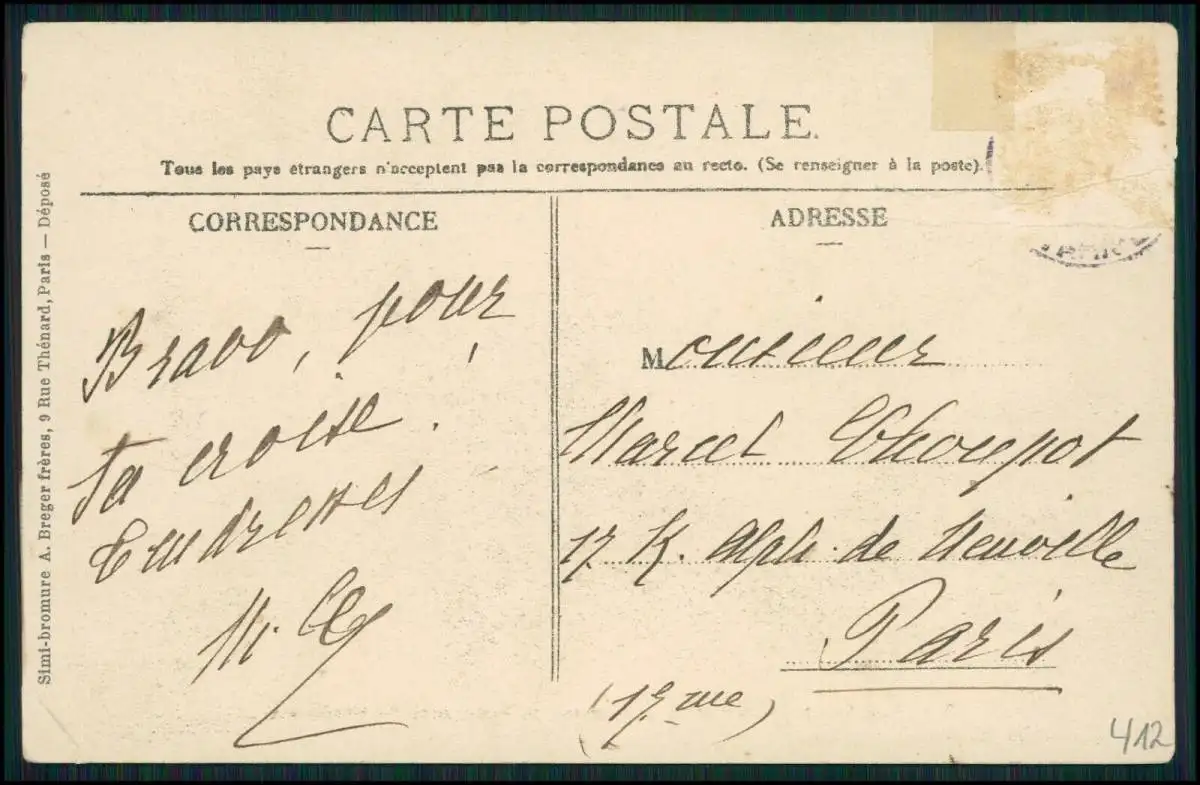 CARTE POSTALE.
Tous les pays étrangers n'acceptent pas la correspondance au recto. (Se renseigner à la poste).
CORRESPONDANCE
Bravo, pour
ta croix !
Tendresses
ADRESSE
Monsieur
Marcel
17 R. Alph. de Neuville
Paris
(17eme)
412
Simi-bromure A. Breger frères, 9 Rue Thénard, Paris — Déposé